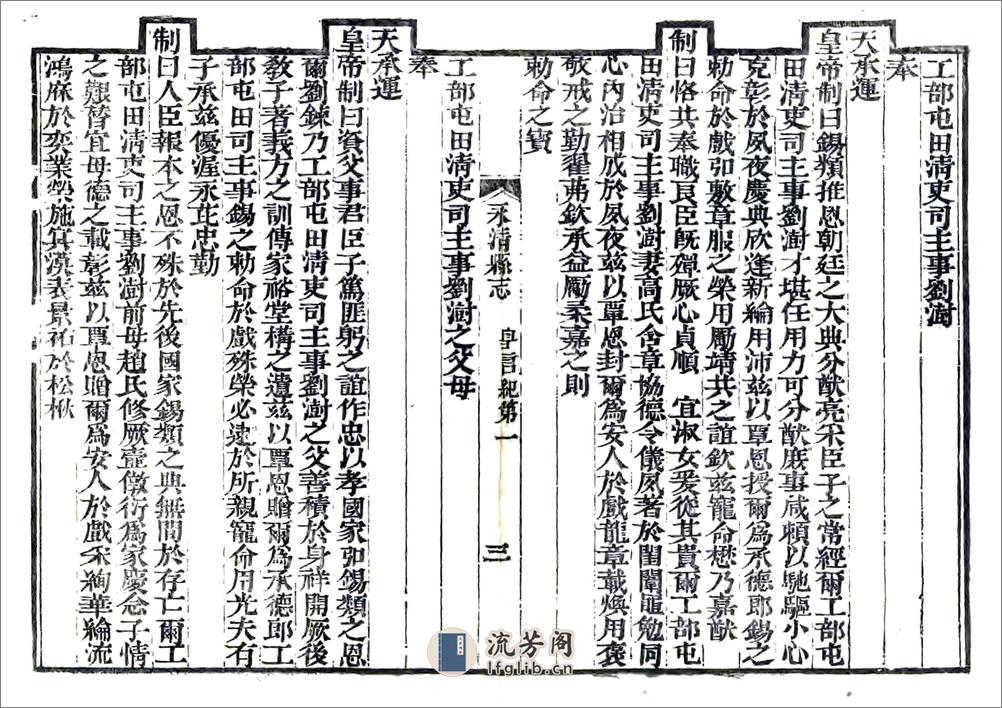 工部屯田清吏司主事劉澍
奉
天承運
皇帝制曰錫類推恩朝廷之大典分猷亮采臣子之常經爾工部屯
田清吏司主事劉澍才堪任用力可分猷庶事咸頼以馳驅小心
克彰於夙夜慶典欣逢新綸用沛兹以覃恩授爾爲承德郎錫之
勅命於戲弘敷章服之榮用勵靖共之誼欽兹寵命懋乃嘉猷
制曰恪共奉職良臣旣殫厥心貞順 宜淑女爰從其貴爾工部屯
田清吏司主事劉澍妻高氏含章協德令儀夙著於閨闈黽勉同
心內治相成於夙夜兹以覃恩封爾爲安人於戲龍章載煥用褒
敬戒之勤翟茀欽承益勵柔嘉之則
勅命之寶
永清縣志
皇言紀第一
三
工部屯田清吏司主事劉澍之父母
奉
天承運
皇帝制曰資父事君臣子篤匪躬之誼作忠以孝國家弘錫類之恩
爾劉鍊乃工部屯田清吏司主事劉澍之父善積於身祥開厥後
敎子著義方之訓傳家裕堂構之遺兹以覃恩贈爾爲承德郎工
部屯田司主事錫之勅命於戲殊榮必逮於所親寵命用光夫有
子承兹優渥永芘忠勤
制曰人臣報本之恩不殊於先後國家錫類之典無間於存亡爾工
部屯田清吏司主事劉澍前母趙氏修厥壼儆衍爲家慶念子情
之艱瘁宜母德之載彰兹以覃恩贈爾爲安人於戲禾絢華綸流
鴻庥於奕業榮施窀漠表景祐於松楸
流芳阁
lfglib.cn